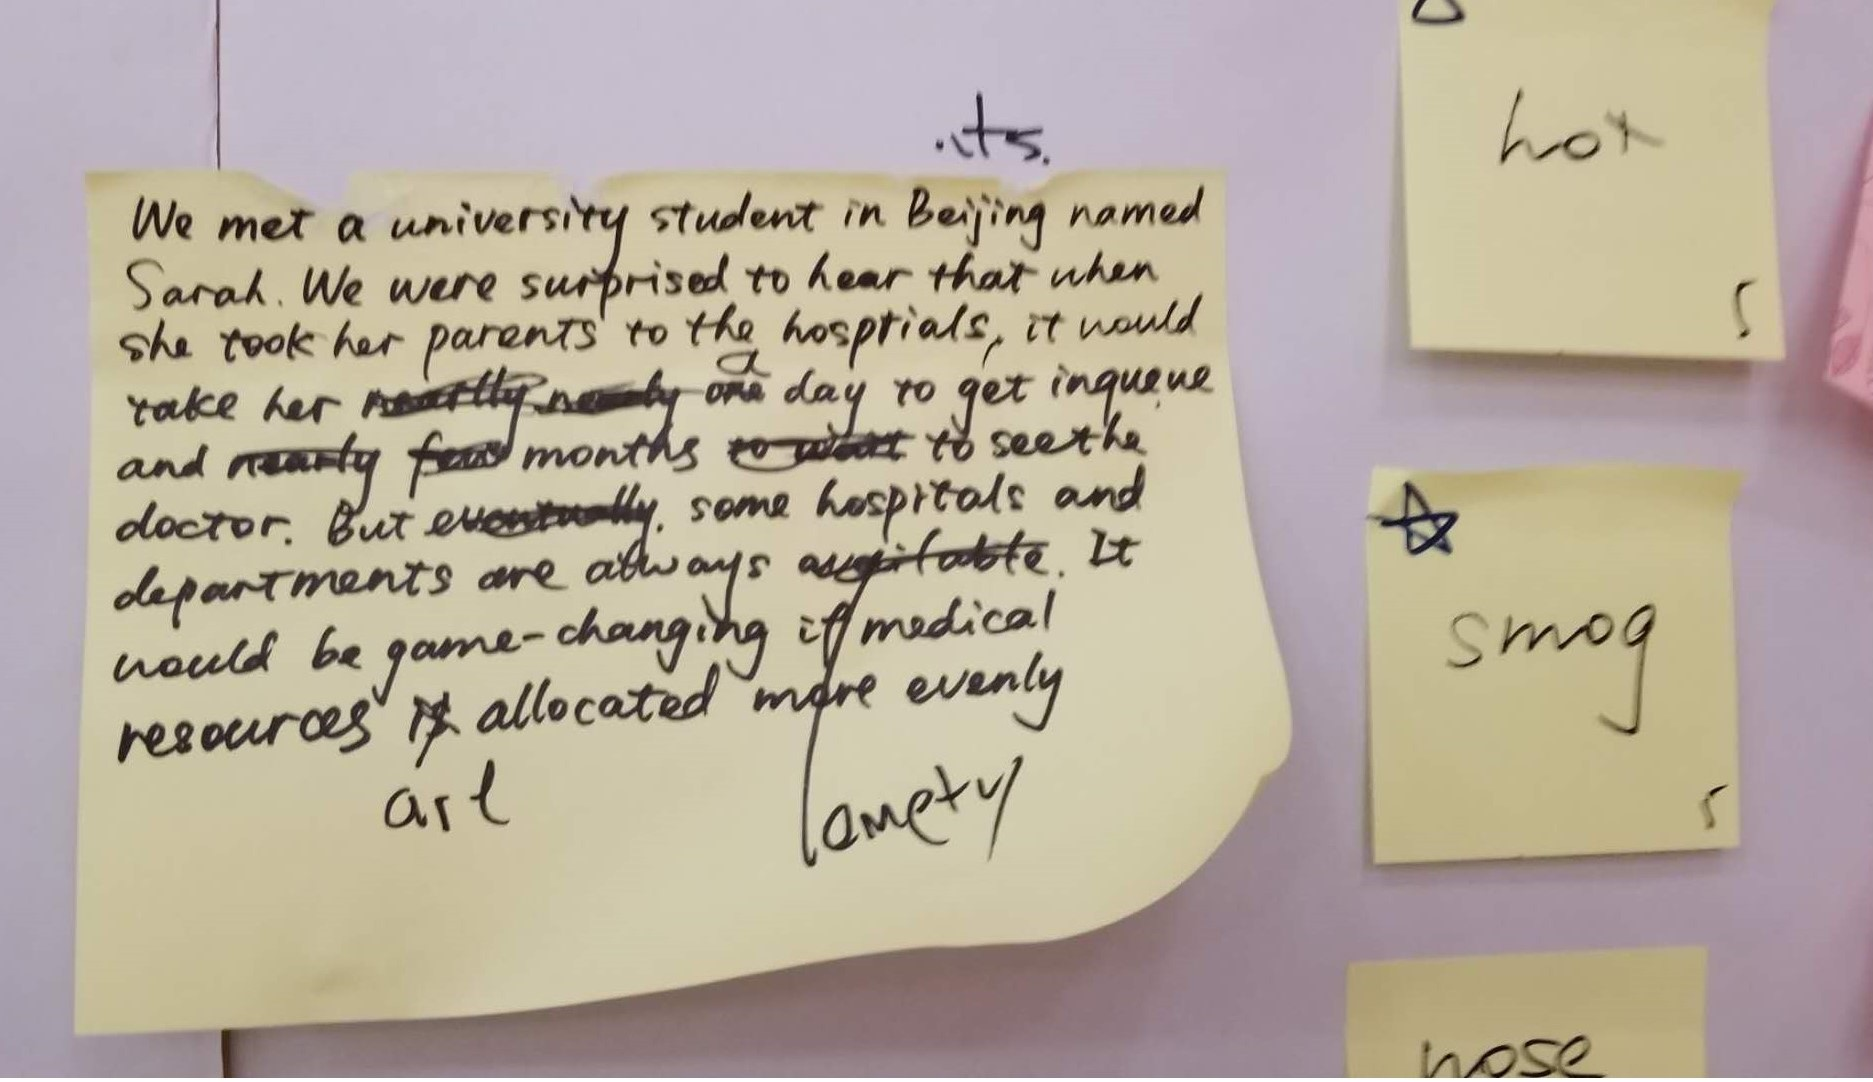 .its.
We met a university student in Beijing named
Sarah. We were surprised to hear that when
she took her parents to the hosptials, it would
a
take her neartly nearly one day to get inqueue
and nearly few months to wait to see the
doctor. But eventually, some hospitals and
departments are always avaitable. It
would be game-changing if medical
resources is allocated more evenly
are
empty
hot
5
smog
5
nose